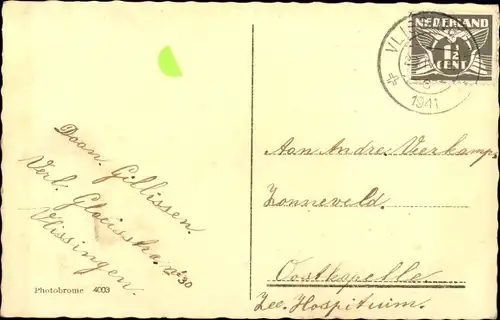 NEDERLAND
1½
CENT
VLI
1941
Daan. Gillissen.
Verl. Glacisstr. No 30
Vlissingen.
Aan Andre. Vierkamp,
Zonneveld.
Oostkapelle.
Zee. Hospitium.
Photobrome 4003